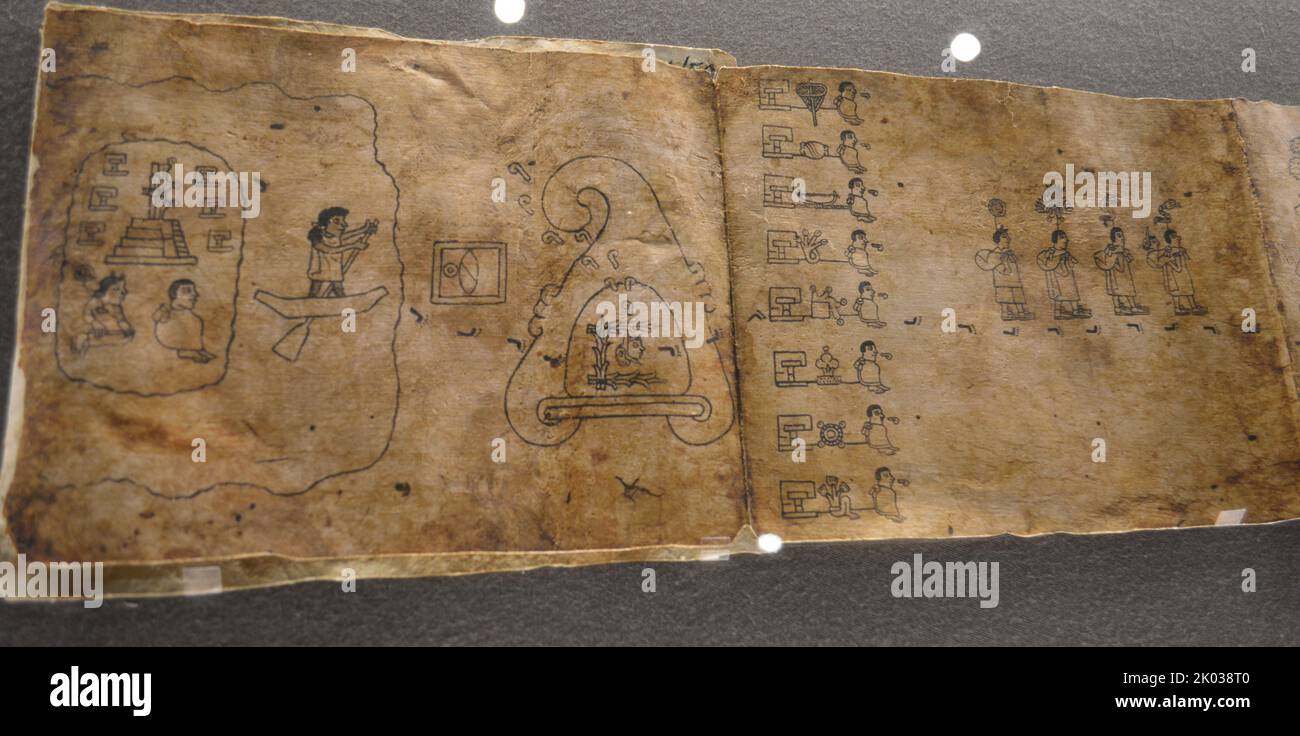 alamy
alamy
Image ID: 2K038T0
www.alamy.com